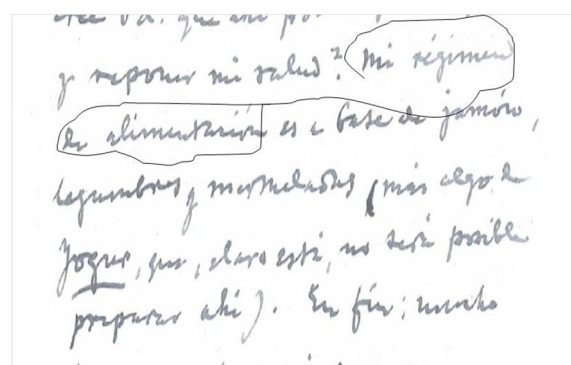 que ahí
y reponer mi salud? Mi régimen
de alimentación es a base de jamón,
legumbres y mermeladas (más algo de
yogur, que, claro está, no será posible
preparar ahí). En fin; mucho